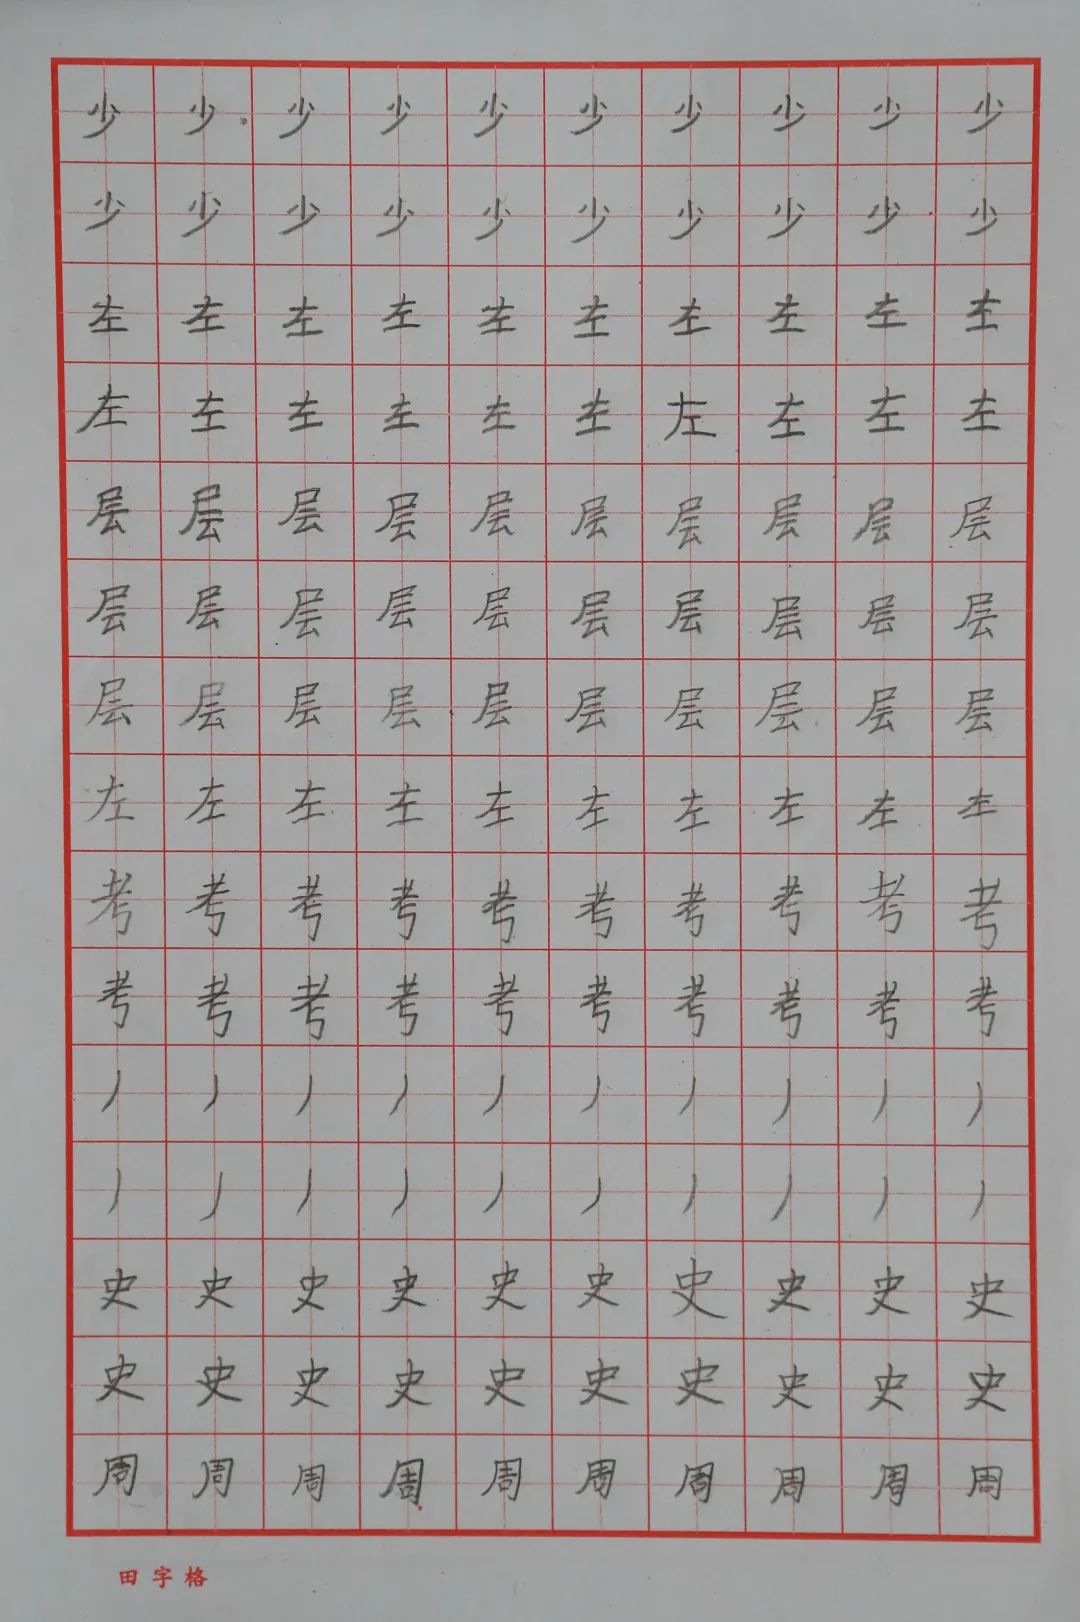 少少少少少少少少少少
少少少少少少少少少少
左左左左左左左左左左
左左左左左左左左左左
层层层层层层层层层层
层层层层层层层层层层
层层层层层层层层层层
左左左左左左左左左左
考考考考考考考考考考
考考考考考考考考考考
丿丿丿丿丿丿丿丿丿丿
丿丿丿丿丿丿丿丿丿丿
史史史史史史史史史史
史史史史史史史史史史
周周周周周周周周周周
田字格